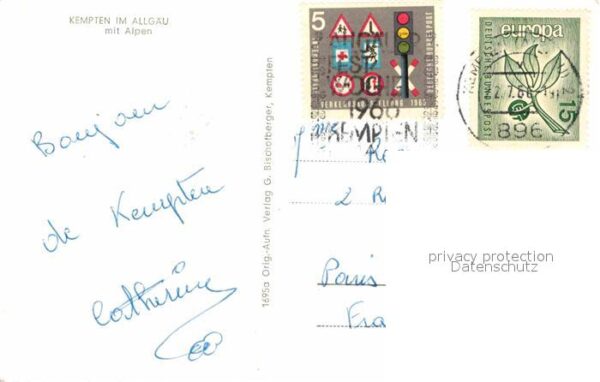 KEMPTEN IM ALLGÄU
mit Alpen
Bonjour
de Kempten
Catherine
1695a Orig.-Aufn. Verlag G. Bischofberger, Kempten
5
DEUTSCHE BUNDESPOST
VERKEHRSAUSSTELLUNG 1965
1966
KEMPTEN
europa
DEUTSCHE BUNDESPOST
15
896
2
Paris
Fra
privacy protection
Datenschutz